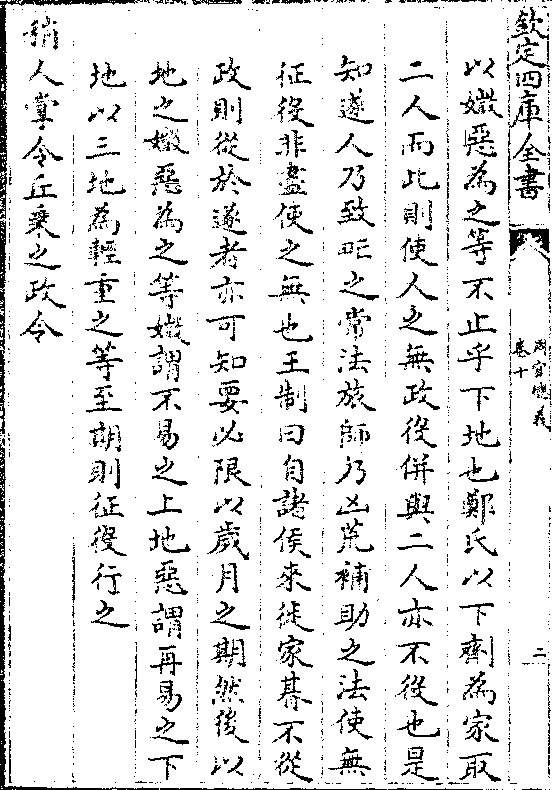 欽定四庫全書
周官總義
卷十
二
以媺惡為之等不止乎下地也鄭氏以下劑為家取
二人而此則使人之無政役併與二人亦不役也是
知遂人乃致甿之常法旅師乃凶荒補助之法使無
征役非盡使之無也王制曰自諸侯來徙家朞不從
政則從於遂者亦可知要必限以歲月之期然後以
地之媺惡為之等媺謂不易之上地惡謂再易之下
地以三地為輕重之等至期則征役行之
稍人掌令丘乗之政令